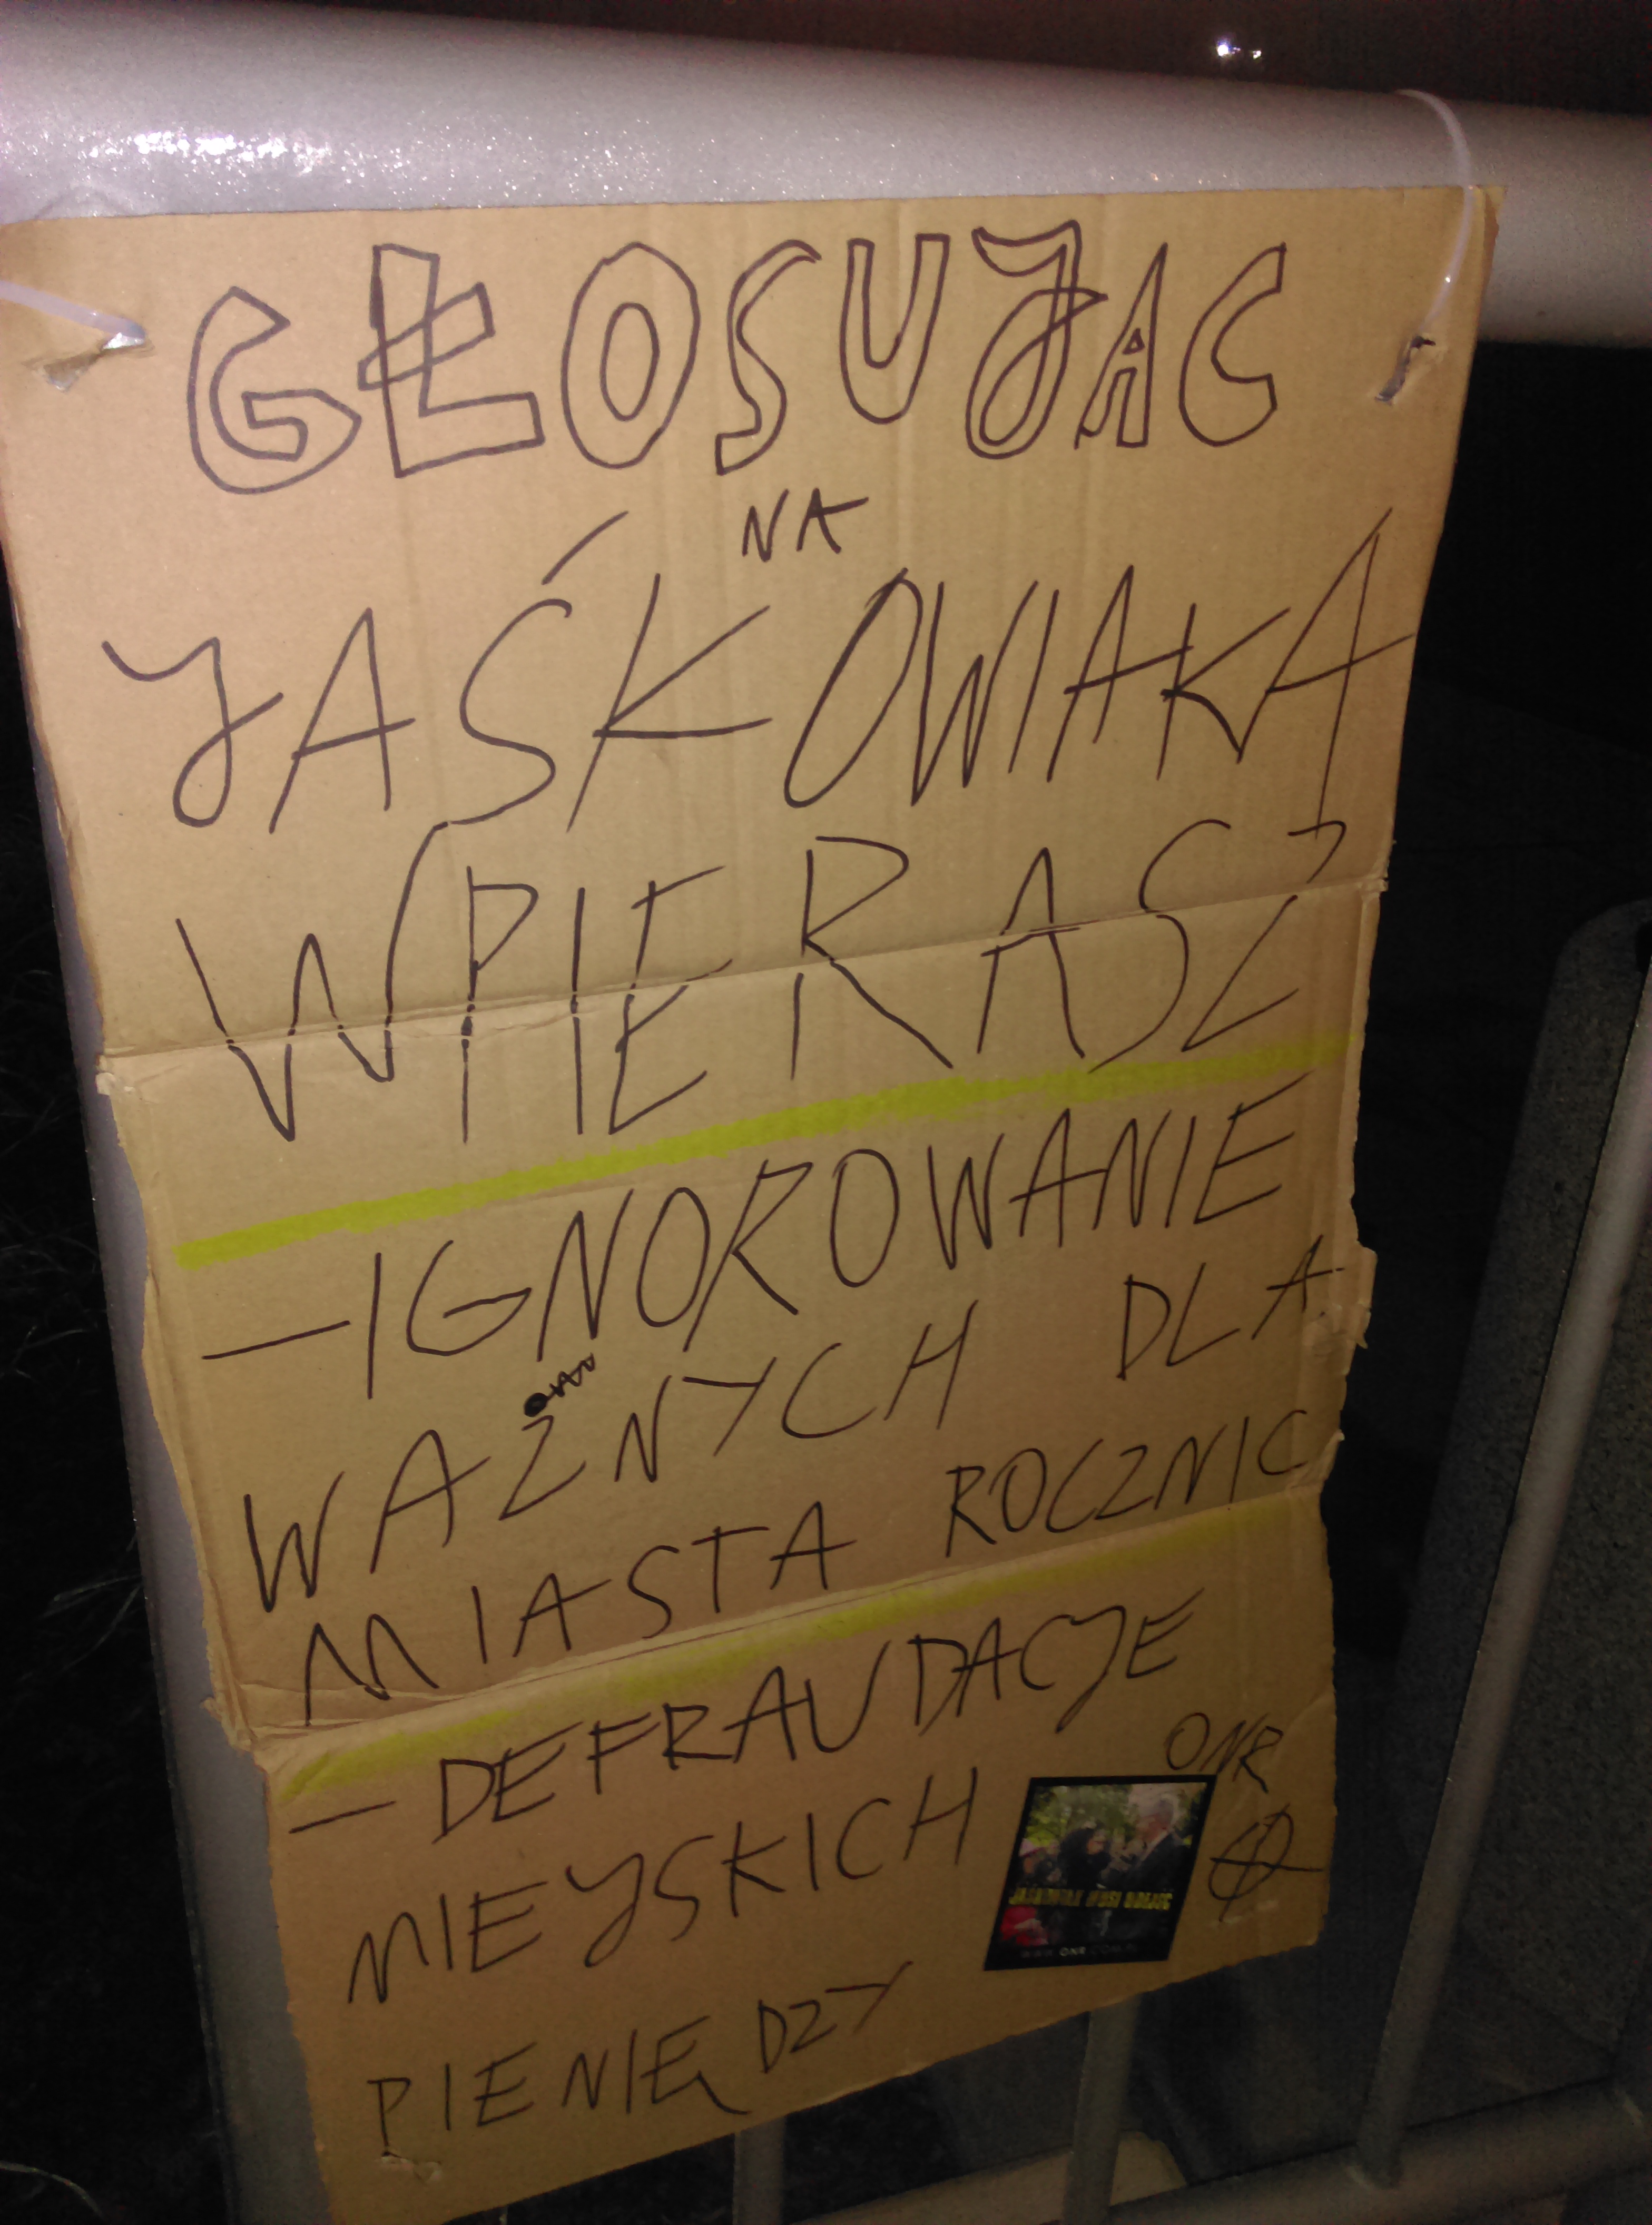 GŁOSUJAC
NA
JAŚKOWIAKA
WPIERASZ
-IGNOROWANIE
WAŻNYCH DLA
MIASTA ROCZNIC
-DEFRAUDACJE
MIEJSKICH
PIENIĘDZY
ONR
JAŚKOWIAK MUSI ODEJŚĆ
WWW.ONR.COM.PL